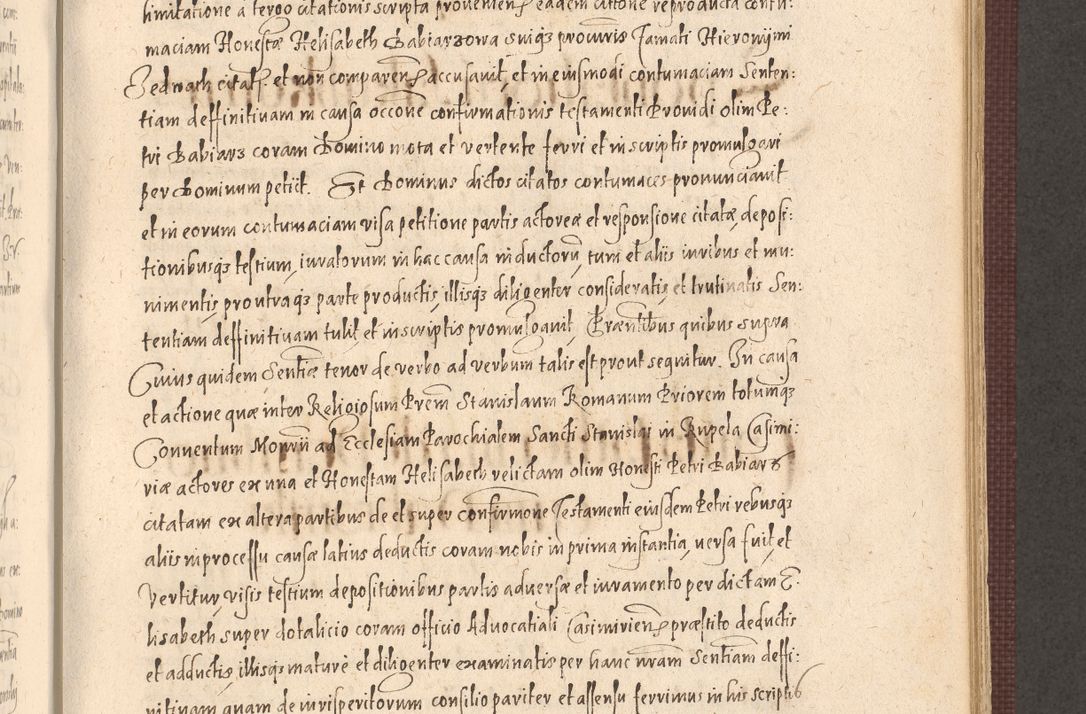 limitatione a tergo citationis scripta provenien eadem cittone reproducta contu:
maciam Honestæ Helisabeth Babiarzowa suiqз procuris Famati Hieronijmi
Sedwath citati et non comparen accusavit, et in eiusmodi contumaciam Senten:
tiam deffinitivam in causa occõne confirmationis testamenti Providi olim Pe:
tri Babiarz coram Domino mota et vertente ferri et in scriptis promulgari
per Dominum petiit. Et Dominus dictos citatos contumaces pronunciavit
et in eorum contumaciam visa petitione partis actoreæ et responsione citatæ, deposi:
tionibusqз testium, iuratorum in hac causa inductorũ, tum et aliis iuribus et mu:
nimentis pro utraqз parte productis, illisqз diligenter consideratis et trutinatis Sen:
tentiam deffinitivam tulit et in scriptis promulgavit, Præntibus quibus supra
Cuius quidem Sentiæ tenor de verbo ad verbum talis est prout sequitur. In causa
et actione quæ inter Religiosum Prem Stanislaum Romanum Priorem totumqз
Conventum Monrii ad Ecclesiam Parochialem Sancti Stanislai in Rupela Casimi:
riæ actores ex una et Honestam Helisabeth relictam olim Honesti Petri Babiarz
citatam ex altera partibus de et super confirmone Testamenti eiusdem Petri rebusqз
aliis in processu causæ latius deductis coram nobis in prima instantia, versa fuit, et
Vertitur, visis testium depositionibus partis adversæ et iuramento per dictam E:
lisabeth super dotalicio coram officio Advocatiali Casimirien præstito deductis
et adductis, illisqз mature et diligenter examinatis per hanc nram Sentiam deffi:
nitivam quam de iurisperitorum consilio pariter et assensu ferrimus in his scriptis